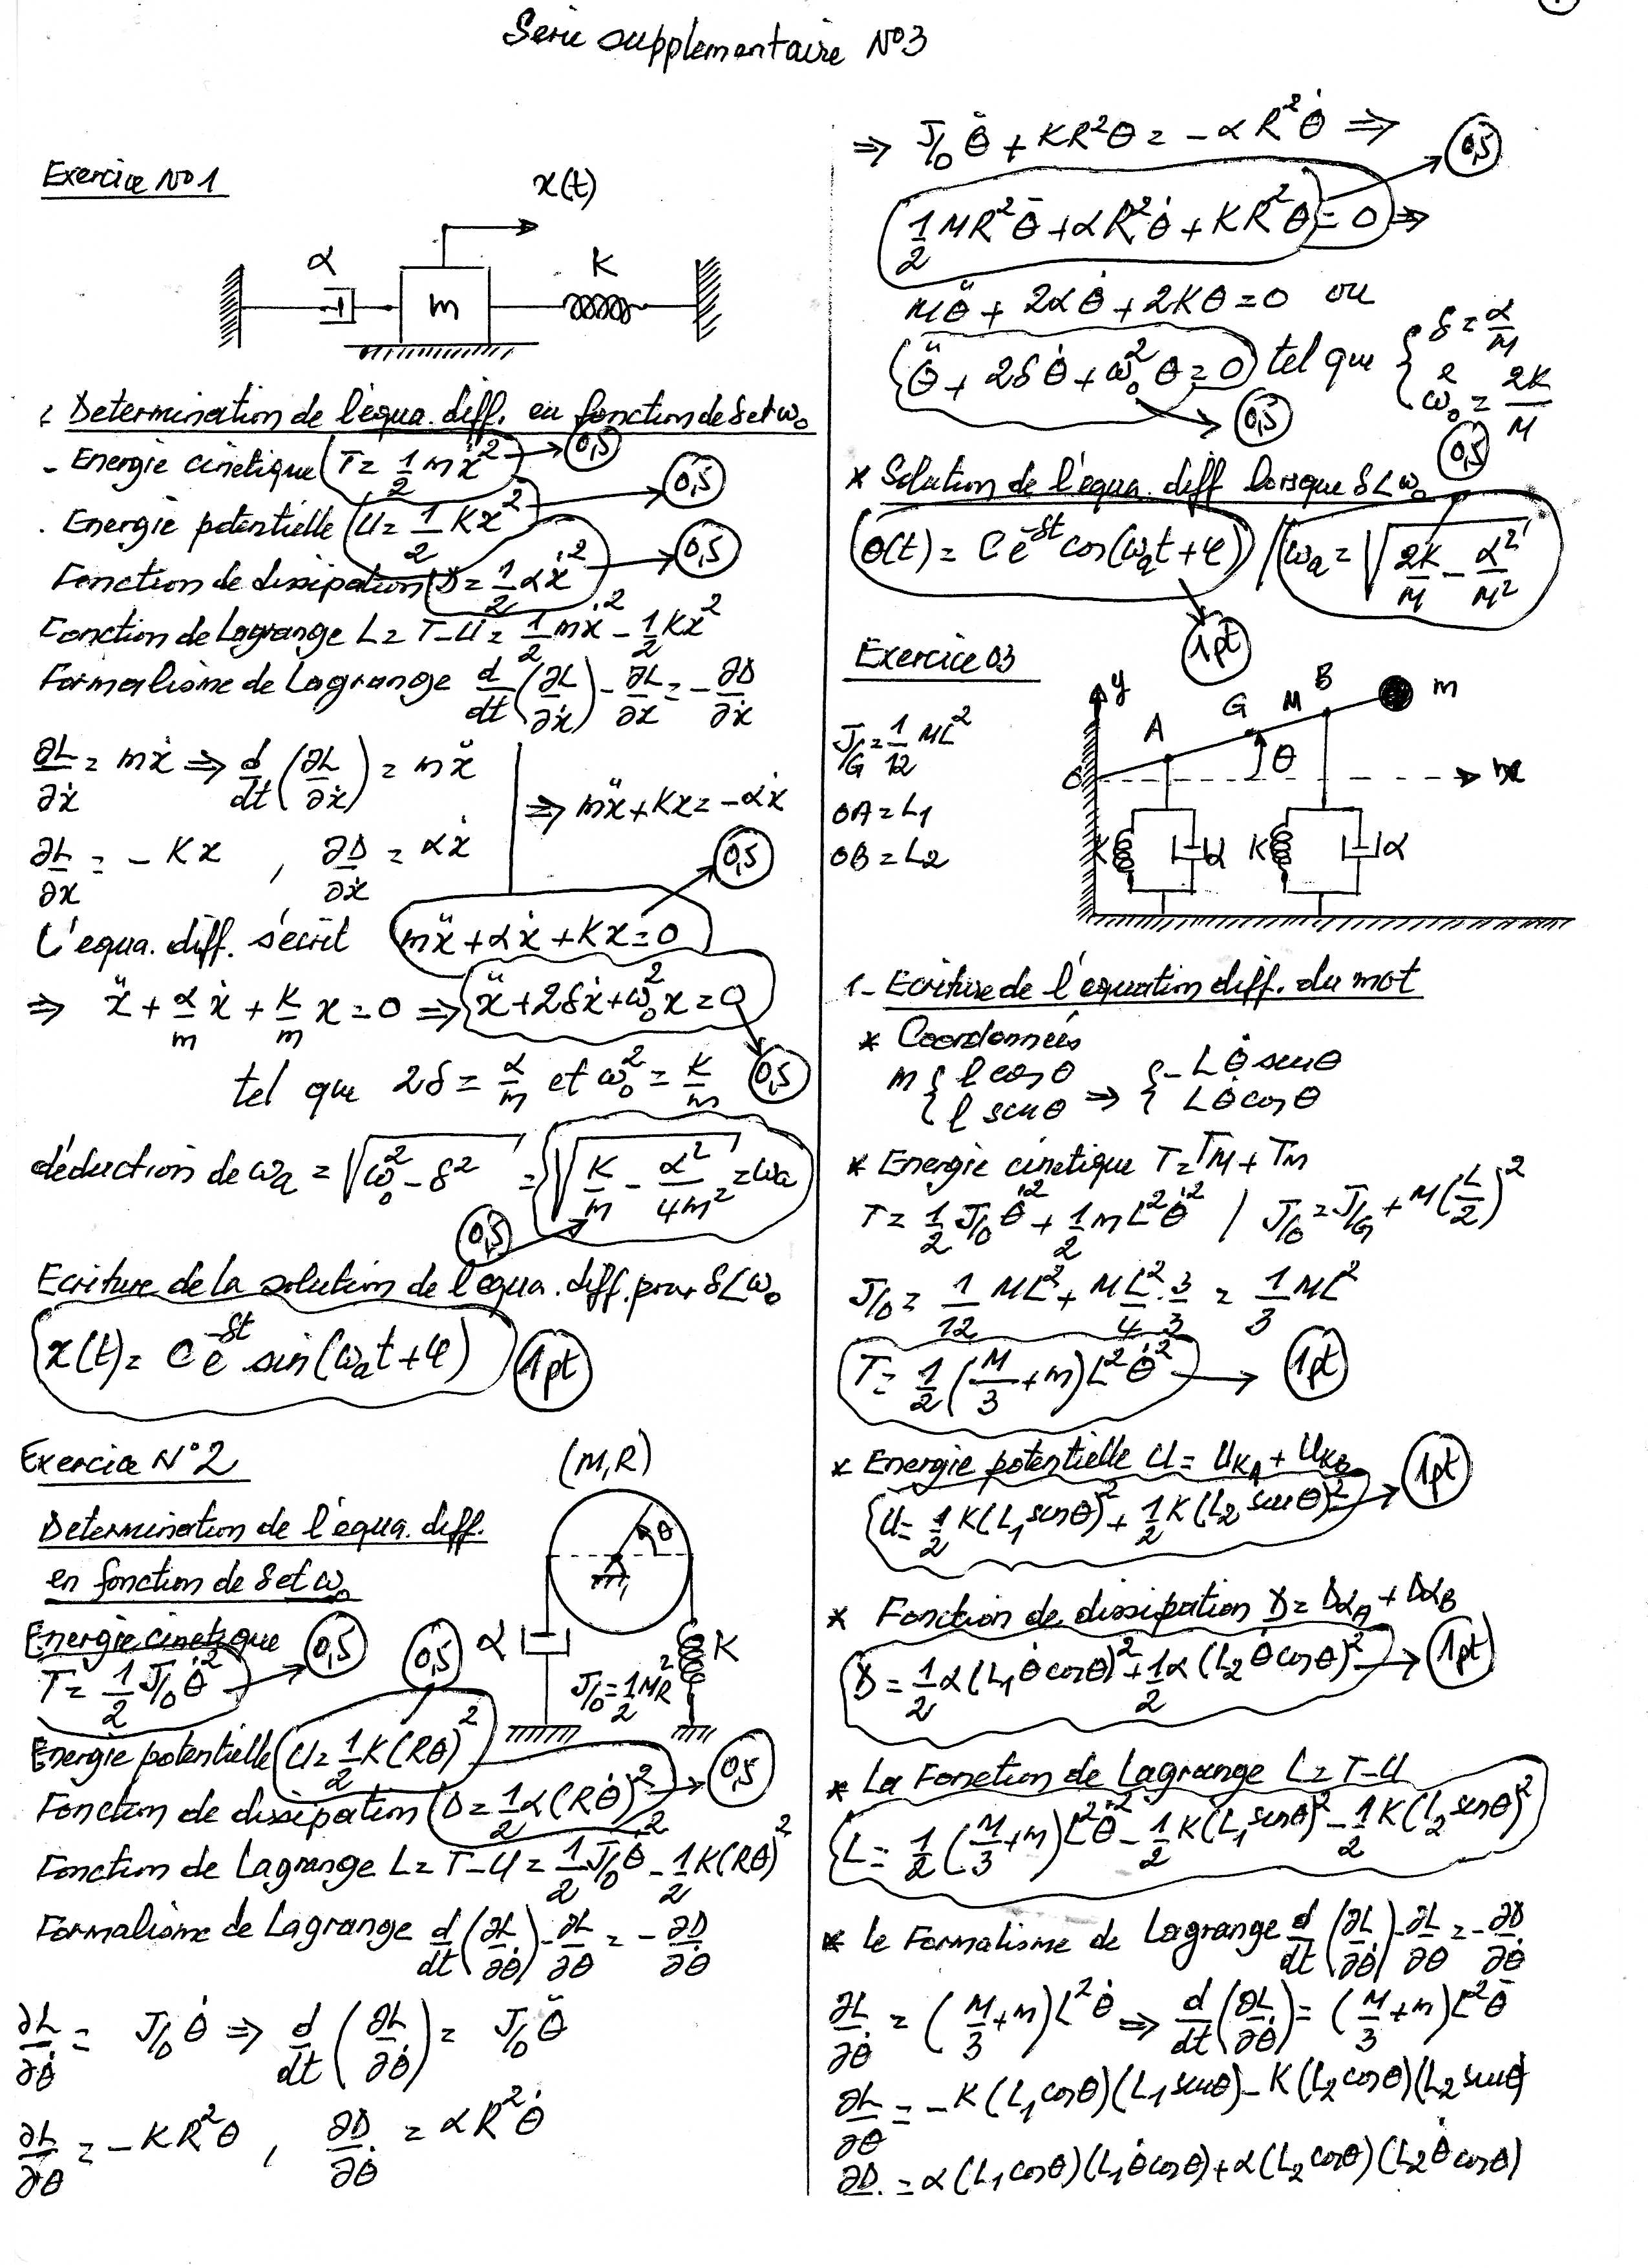 Serie supplementaire N°3
Exercice N°1
x(t)
α
m
K
: Determination de l'équa. diff. en fonction de δ et ω₀
- Energie cinetique T = 1/2 mẋ² → 0,5
. Energie potentielle U = 1/2 Kx² → 0,5
Fonction de dissipation D = 1/2 αẋ² → 0,5
Fonction de Lagrange L = T-U = 1/2 mẋ² - 1/2 Kx²
Formalisme de Lagrange d/dt(∂L/∂ẋ) - ∂L/∂x = - ∂D/∂ẋ
∂L/∂ẋ = mẋ ⇒ d/dt(∂L/∂ẋ) = mẍ
⇒ mẍ + Kx = -αẋ
∂L/∂x = - Kx , ∂D/∂ẋ = αẋ
0,5
L'equa. diff. s'écrit mẍ + αẋ + Kx = 0
⇒ ẍ + α/m ẋ + K/m x = 0 ⇒ ẍ + 2δẋ + ω₀² x = 0
tel que 2δ = α/m et ω₀² = K/m 0,5
déduction de ωa = √(ω₀² - δ²) = √(K/m - α²/4m²) = ωa
0,5
Ecriture de la solution de l'equa. diff. pour δ<ω₀
x(t) = C e^-δt sin(ωat + φ) 1pt
Exercice N°2
(M,R)
Determination de l'équa. diff.
en fonction de δ et ω₀
θ
Energie cinetique
T = 1/2 J/0 θ̇² → 0,5
0,5
α
K
J/0 = 1/2 MR²
Energie potentielle U = 1/2 K(Rθ)²
Fonction de dissipation D = 1/2 α(Rθ̇)² → 0,5
Fonction de Lagrange L = T-U = 1/2 J/0 θ̇² - 1/2 K(Rθ)²
Formalisme de Lagrange d/dt(∂L/∂θ̇) - ∂L/∂θ = - ∂D/∂θ̇
∂L/∂θ̇ = J/0 θ̇ ⇒ d/dt(∂L/∂θ̇) = J/0 θ̈
∂L/∂θ = - KR²θ , ∂D/∂θ̇ = αR²θ̇
⇒ J/0 θ̈ + KR²θ = - αR²θ̇ ⇒
0,5
1/2 MR²θ̈ + αR²θ̇ + KR²θ = 0 ⇒
Mθ̈ + 2αθ̇ + 2Kθ = 0 ou
θ̈ + 2δθ̇ + ω₀² θ = 0 tel que { δ = α/M
ω₀² = 2K/M
0,5
0,5
* Solution de l'équa. diff lorsque δ<ω₀
θ(t) = C e^-δt cos(ωat + φ) / ωa = √(2K/M - α²/M²)
1pt
Exercice 03
y
A
G
M
B
m
J/G = 1/12 ML²
O
θ
x
OA = L₁
OB = L₂
K
α
K
α
1- Ecriture de l'équation diff. du mot
* Coordonnées
m { l cosθ
l sinθ ⇒ { - Lθ̇ sinθ
Lθ̇ cosθ
* Energie cinétique T = TM + Tm
T = 1/2 J/0 θ̇² + 1/2 mL²θ̇² / J/0 = J/G + M(L/2)²
J/0 = 1/12 ML² + ML²/4 . 3/3 = 1/3 ML²
T = 1/2 (M/3 + m) L²θ̇² → 1pt
* Energie potentielle U = UKA + UKB
U = 1/2 K(L₁ sinθ)² + 1/2 K(L₂ sinθ)² → 1pt
* Fonction de dissipation D = DαA + DαB
D = 1/2 α(L₁θ̇cosθ)² + 1/2 α(L₂θ̇cosθ)² → 1pt
* La Fonction de Lagrange L = T-U
L = 1/2 (M/3 + m) L²θ̇² - 1/2 K(L₁ sinθ)² - 1/2 K(L₂ sinθ)²
* le Formalisme de Lagrange d/dt(∂L/∂θ̇) - ∂L/∂θ = - ∂D/∂θ̇
∂L/∂θ̇ = (M/3 + m) L²θ̇ ⇒ d/dt(∂L/∂θ̇) = (M/3 + m) L²θ̈
∂L/∂θ = - K(L₁cosθ)(L₁sinθ) - K(L₂cosθ)(L₂sinθ)
∂D. = α(L₁cosθ)(L₁θ̇cosθ) + α(L₂cosθ)(L₂θ̇cosθ)